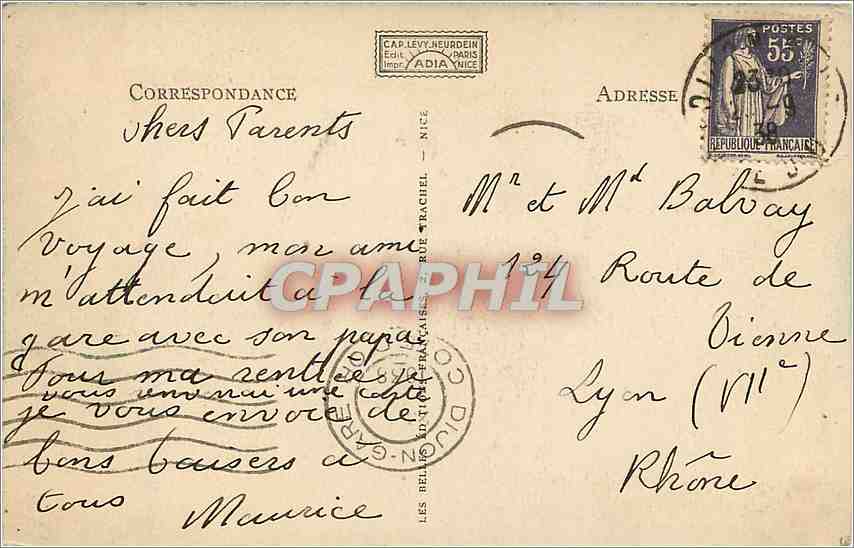 CAP. LEVY. NEURDEIN
Edit. PARIS
Impr. ADIA NICE
CORRESPONDANCE
ADRESSE
POSTES
55c
REPUBLIQUE FRANCAISE
38
chers Parents
j'ai fait bon
voyage, mon ami
m'attendait a la
gare avec son papa.
Pour ma rentrée je
vous enverrai une carte
je vous envoie de
bons baisers a
tous
Maurice
LES BELLES EDITIONS FRANÇAISES, 2, RUE TRACHEL — NICE
Mr et Md Balvay
124 Route de
Vienne
Lyon (VIIe)
Rhône
DIJON-GARE
COTE D'OR
CPAPHIL